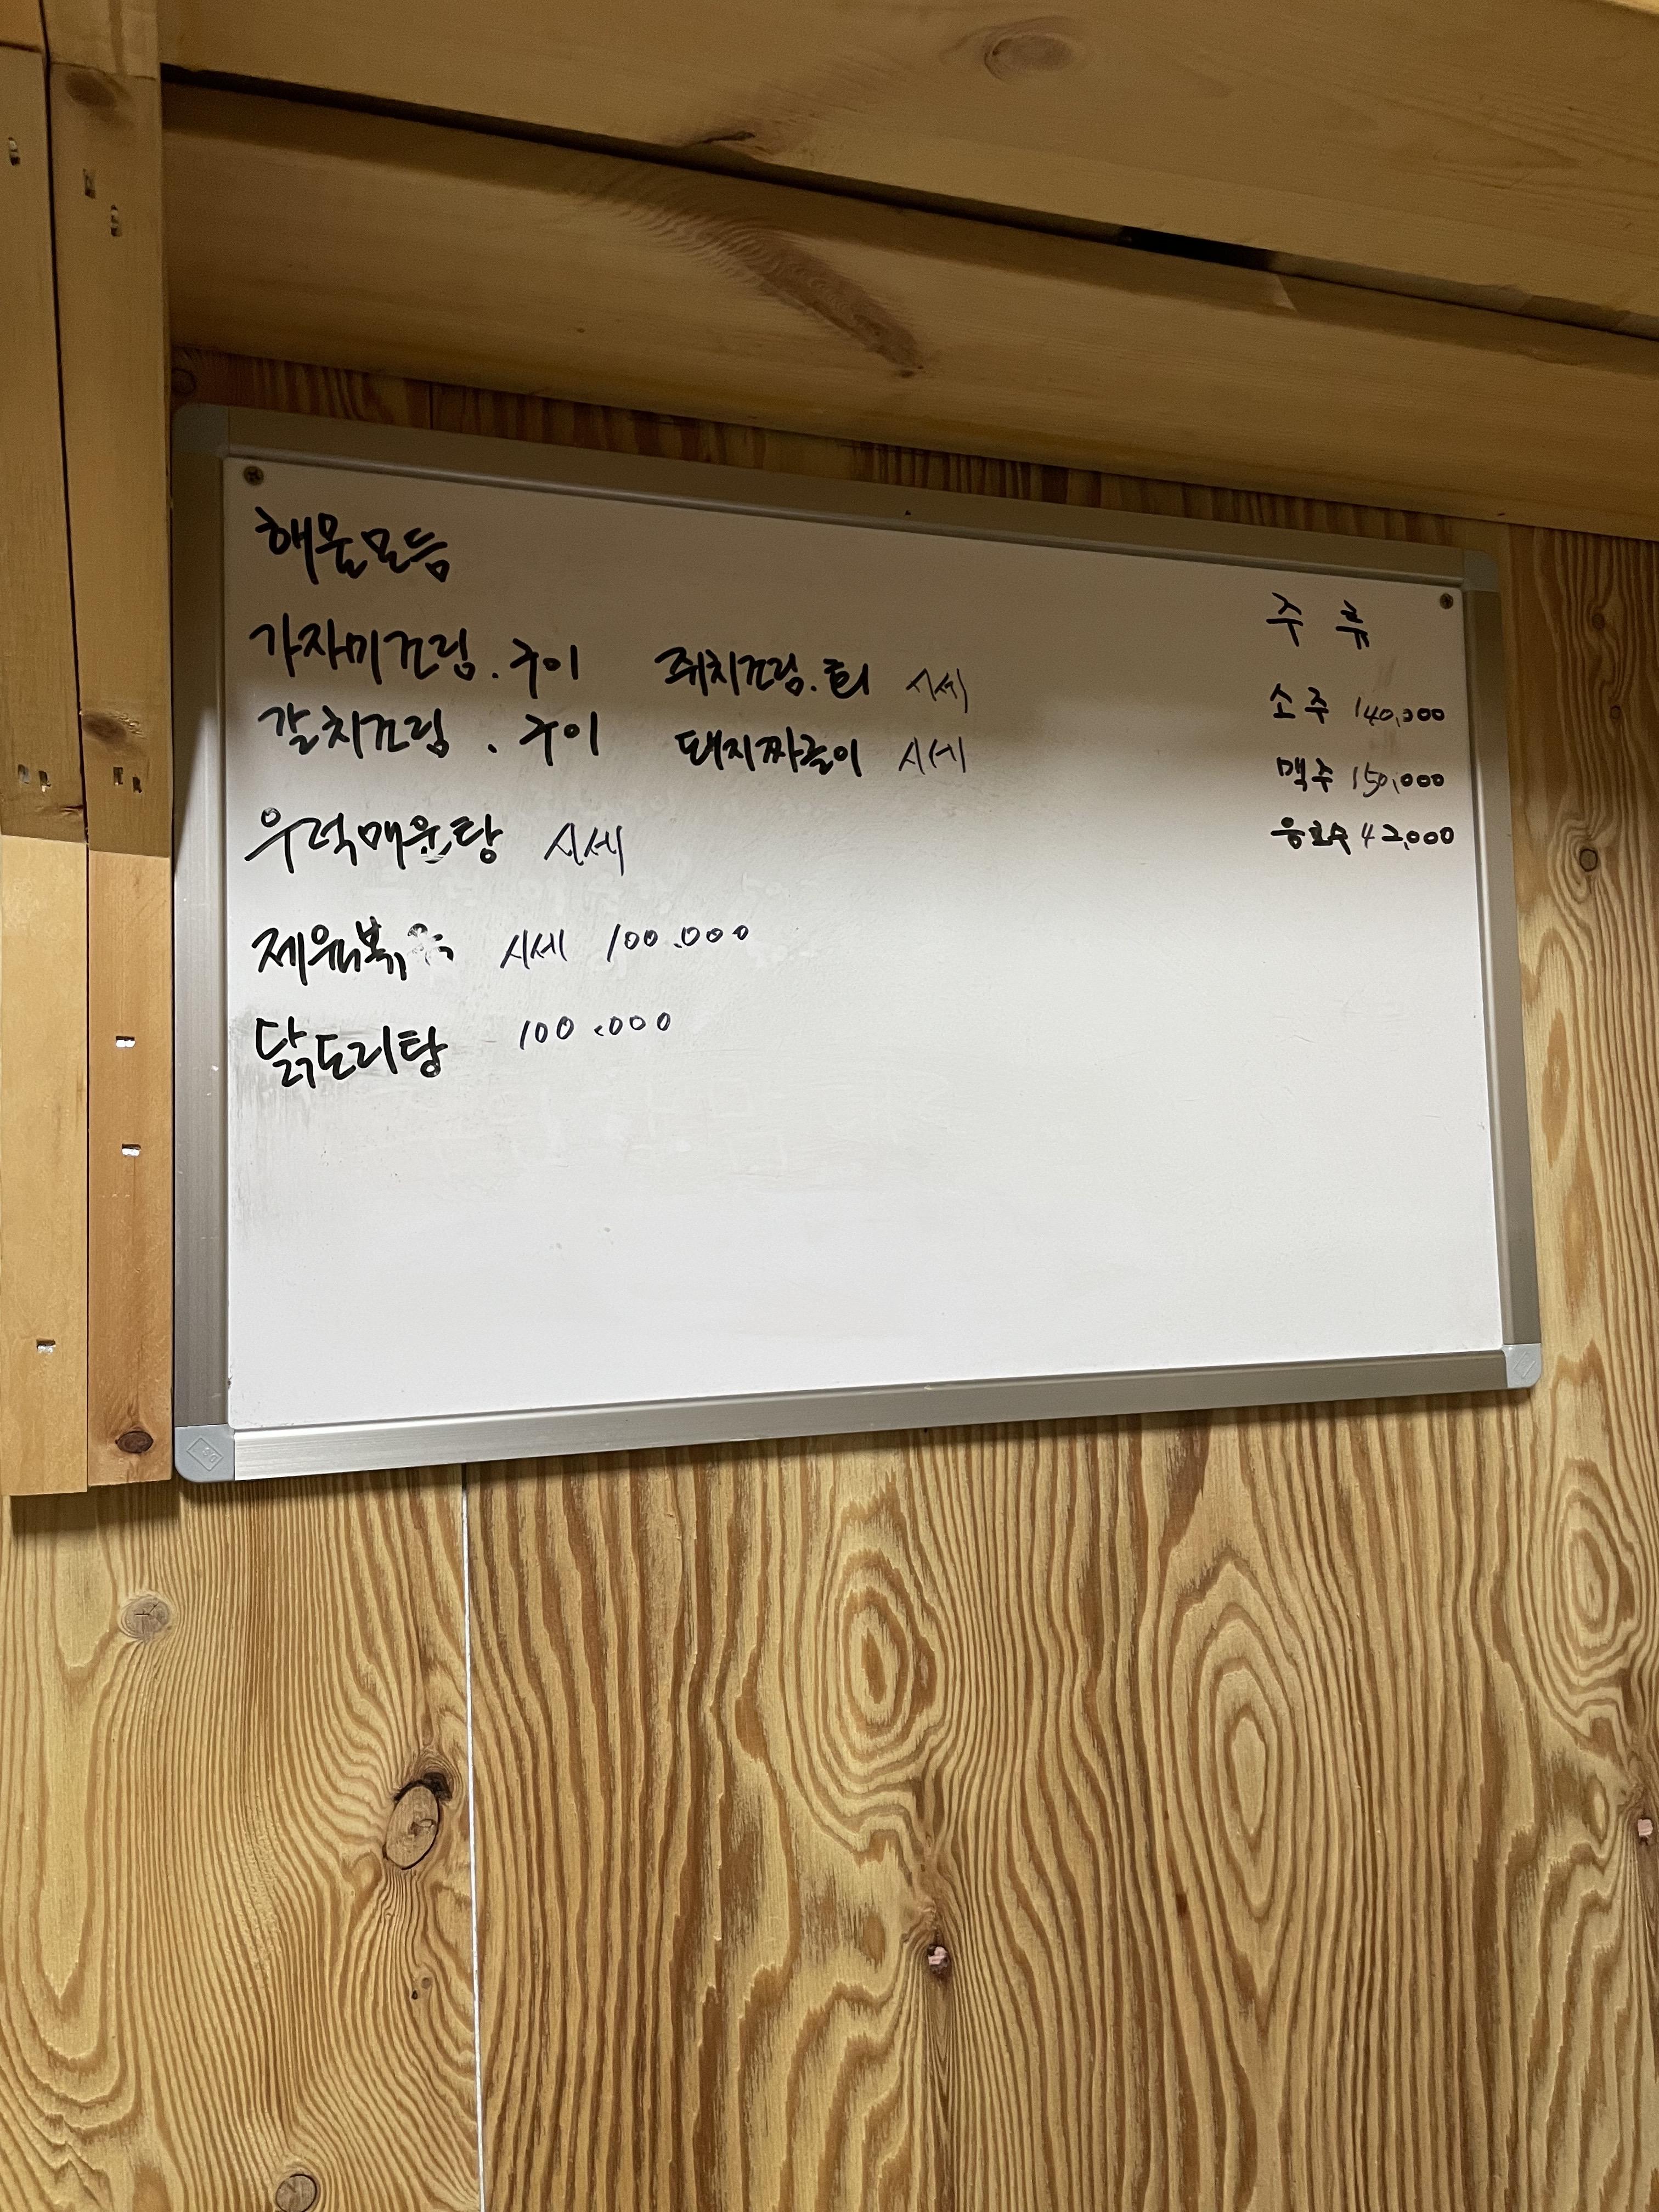 해물모듬
가자미건림.구이 쥐치건림.회 시세
갈치건림.구이 돼지짜글이 시세
우럭매운탕 시세
제육볶 시세 100.000
닭도리탕 100.000
주류
소주 140,000
맥주 150,000
음료수 42,000